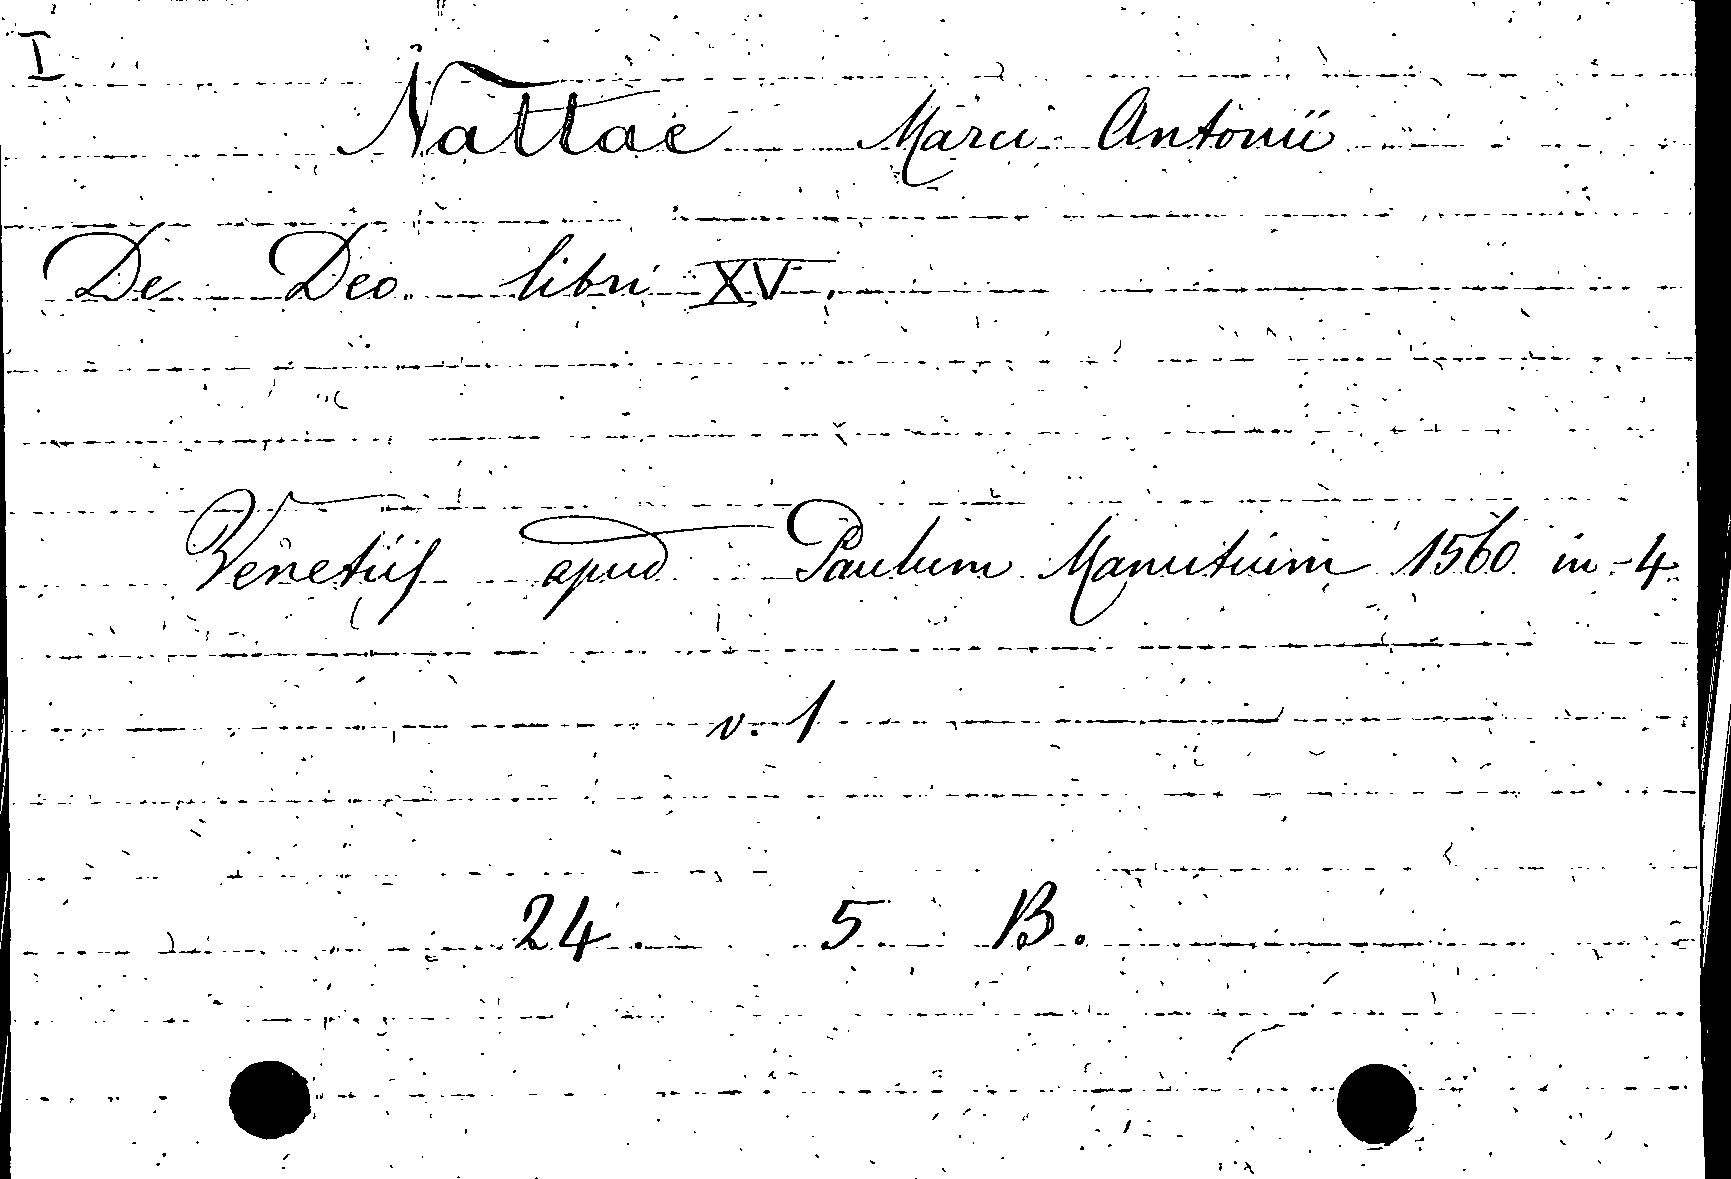 I
Nattae Marci Antonii
De Deo libri XV.
Venetiis apud Paulum Manutium 1560 in-4
v. 1
24 5 B.